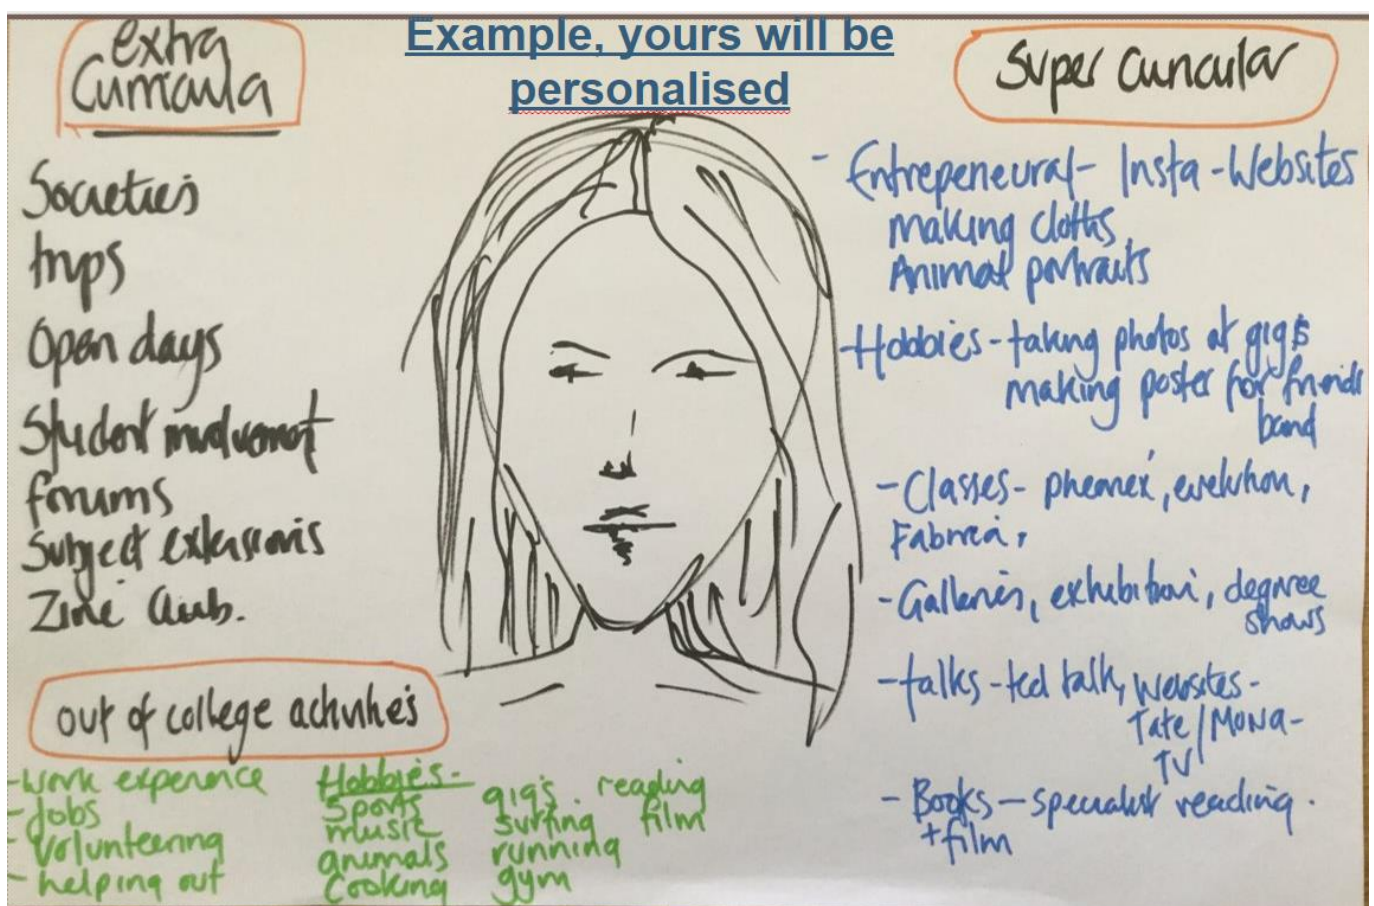 Example, yours will be
personalised
extra
Curricula
Societies
trips
Open days
Student involvement
forums
Subject extensions
Zine Club.
out of college activities
-work experence
-Jobs
-Volunteering
-helping out
Hobbies-
Sports
music
animals
Cooking
gigs.
surfing
running
gym
reading
film
Super Curricular
- Entrepeneural- Insta-Websites
making cloths
Animal portraits
-Hobbies-taking photos at gigs
making poster for friends
band
-Classes-
-Galleries, exhibition, degree
shows
-talks-ted talk, Websites-
Tate/
TV
- Books-specialist reading.
+film